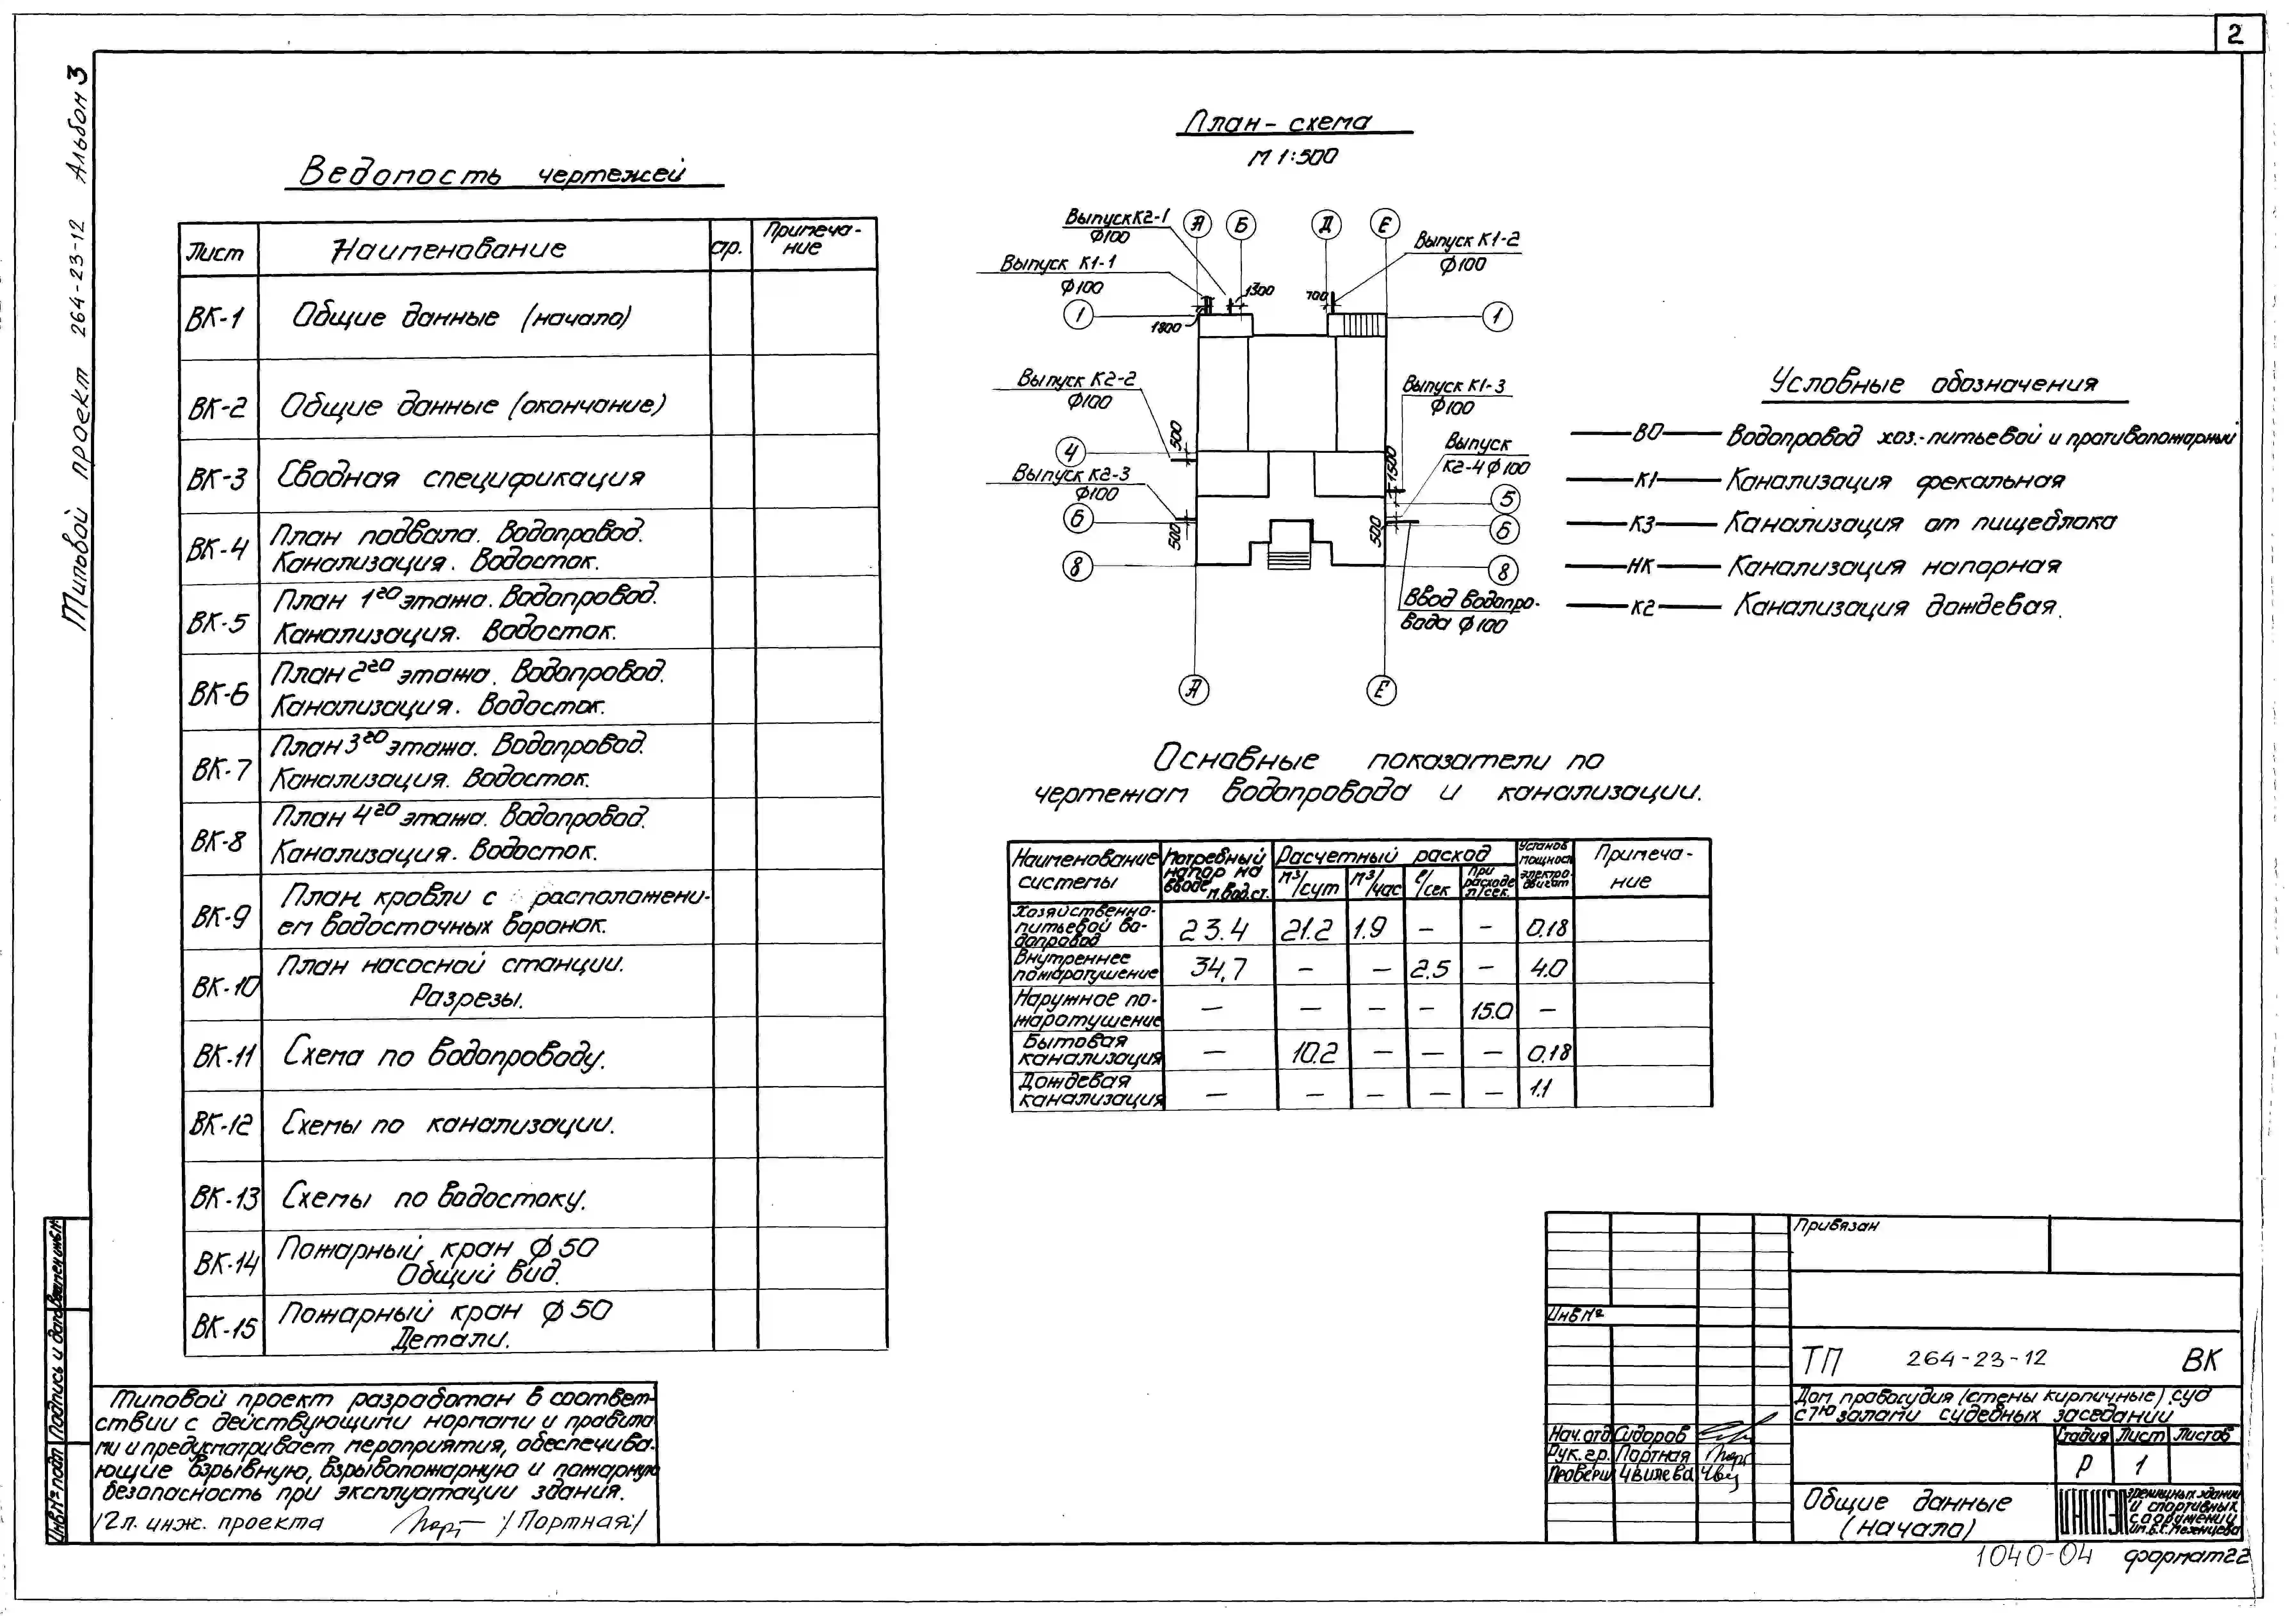 2
Типовой проект 264-23-12 Альбом 3
Ведомость чертежей
Лист Наименование стр. Примеча-
ние
ВК-1 Общие данные (начало)
ВК-2 Общие данные (окончание)
ВК-3 Сводная спецификация
ВК-4 План подвала. Водопровод.
Канализация. Водосток.
ВК-5 План 1го этажа. Водопровод.
Канализация. Водосток.
ВК-6 План 2го этажа. Водопровод.
Канализация. Водосток.
ВК-7 План 3го этажа. Водопровод.
Канализация. Водосток.
ВК-8 План 4го этажа. Водопровод.
Канализация. Водосток.
ВК-9 План кровли с расположени-
ем водосточных воронок.
ВК-10 План насосной станции.
Разрезы.
ВК-11 Схема по водопроводу.
ВК-12 Схемы по канализации.
ВК-13 Схемы по водостоку.
ВК-14 Пожарный кран ф 50
Общий вид.
ВК-15 Пожарный кран ф 50
Детали.
Типовой проект разработан в соответ-
ствии с действующими нормами и правила
ми и предусматривает мероприятия, обеспечива-
ющие взрывную, взрывопожарную и пожарную
безопасность при эксплуатации здания.
Гл. инж. проекта /Портная/
План-схема
М 1:500
Выпуск К2-1
ф100
А Б Д Е
Выпуск К1-2
ф100
Выпуск К1-1
ф100
1300
700
1800
1 1
Выпуск К2-2
ф100
Выпуск К1-3
ф100
500
4
Выпуск
К2-4 ф100
1500
Выпуск К2-3
ф100
5
6 6
500
500
8 8
Ввод водопро-
вода ф100
А Е
Условные обозначения
В0 Водопровод хоз.-питьевой и противопожарный
К1 Канализация фекальная
К3 Канализация от пищеблока
НК Канализация напорная
К2 Канализация дождевая.
Основные показатели по
чертежам водопровода и канализации.
Наименование системы
Потребный напор на вводе м.вод.ст.
Расчетный расход
м³/сут м³/час л/сек при расходе л/сек.
Установ мощност электро-двигат
Примеча-
ние
Хозяйственно-
питьевой во-
допровод 23.4 21.2 1.9 — — 0.18
Внутреннее
пожаротушение 34,7 — — 2.5 — 4.0
Наружное по-
жаротушение — — — — 15.0 —
Бытовая
канализация — 10.2 — — — 0.18
Дождевая
канализация — — — — — 1.1
Привязан
Инв №
ТП 264-23-12 ВК
Дом правосудия (стены кирпичные) суд
с 7ю залами судебных заседаний
Нач. отд Сидоров
Рук. гр. Портная
Провери Чвилева
Стадия Лист Листов
Р 1
Общие данные
(начало)
зрелищных зданий
и спортивных
сооружений
им. Б.С. Мезенцева
1040-04 формат 22
Инв № подл Подпись и дата Взамен инв №